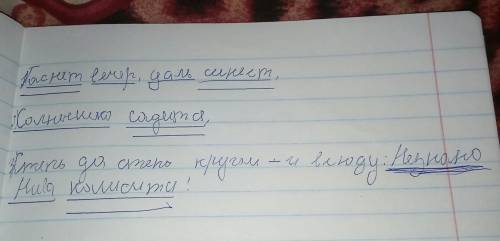 Гаснет вечер, даль синеет,
Солнышко садится,
Степь да степь кругом – и всюду: Нива колосится!